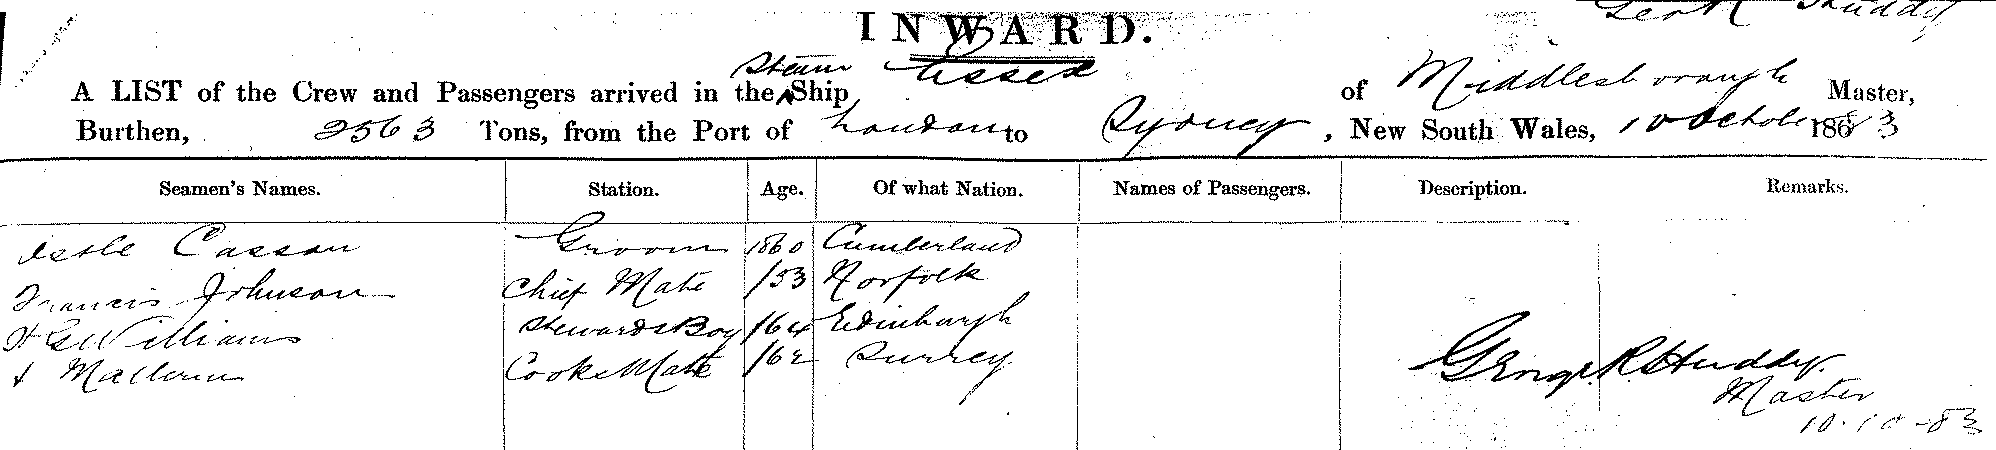 INWARD.
Steam Essex
A LIST of the Crew and Passengers arrived in the Ship of Middlesborough Master,
Burthen, 2563 Tons, from the Port of London to Sydney, New South Wales, 10 October 1883
Seamen's Names. Station. Age. Of what Nation. Names of Passengers. Description. Remarks.
Casson Groom 1860 Cumberland
Francis Johnson Chief Mate /53 Norfolk
Williams Stewards Boy /64 Edinburgh
Cooks Mate /62 Surrey
George R. Huddy.
Master
10.10-83